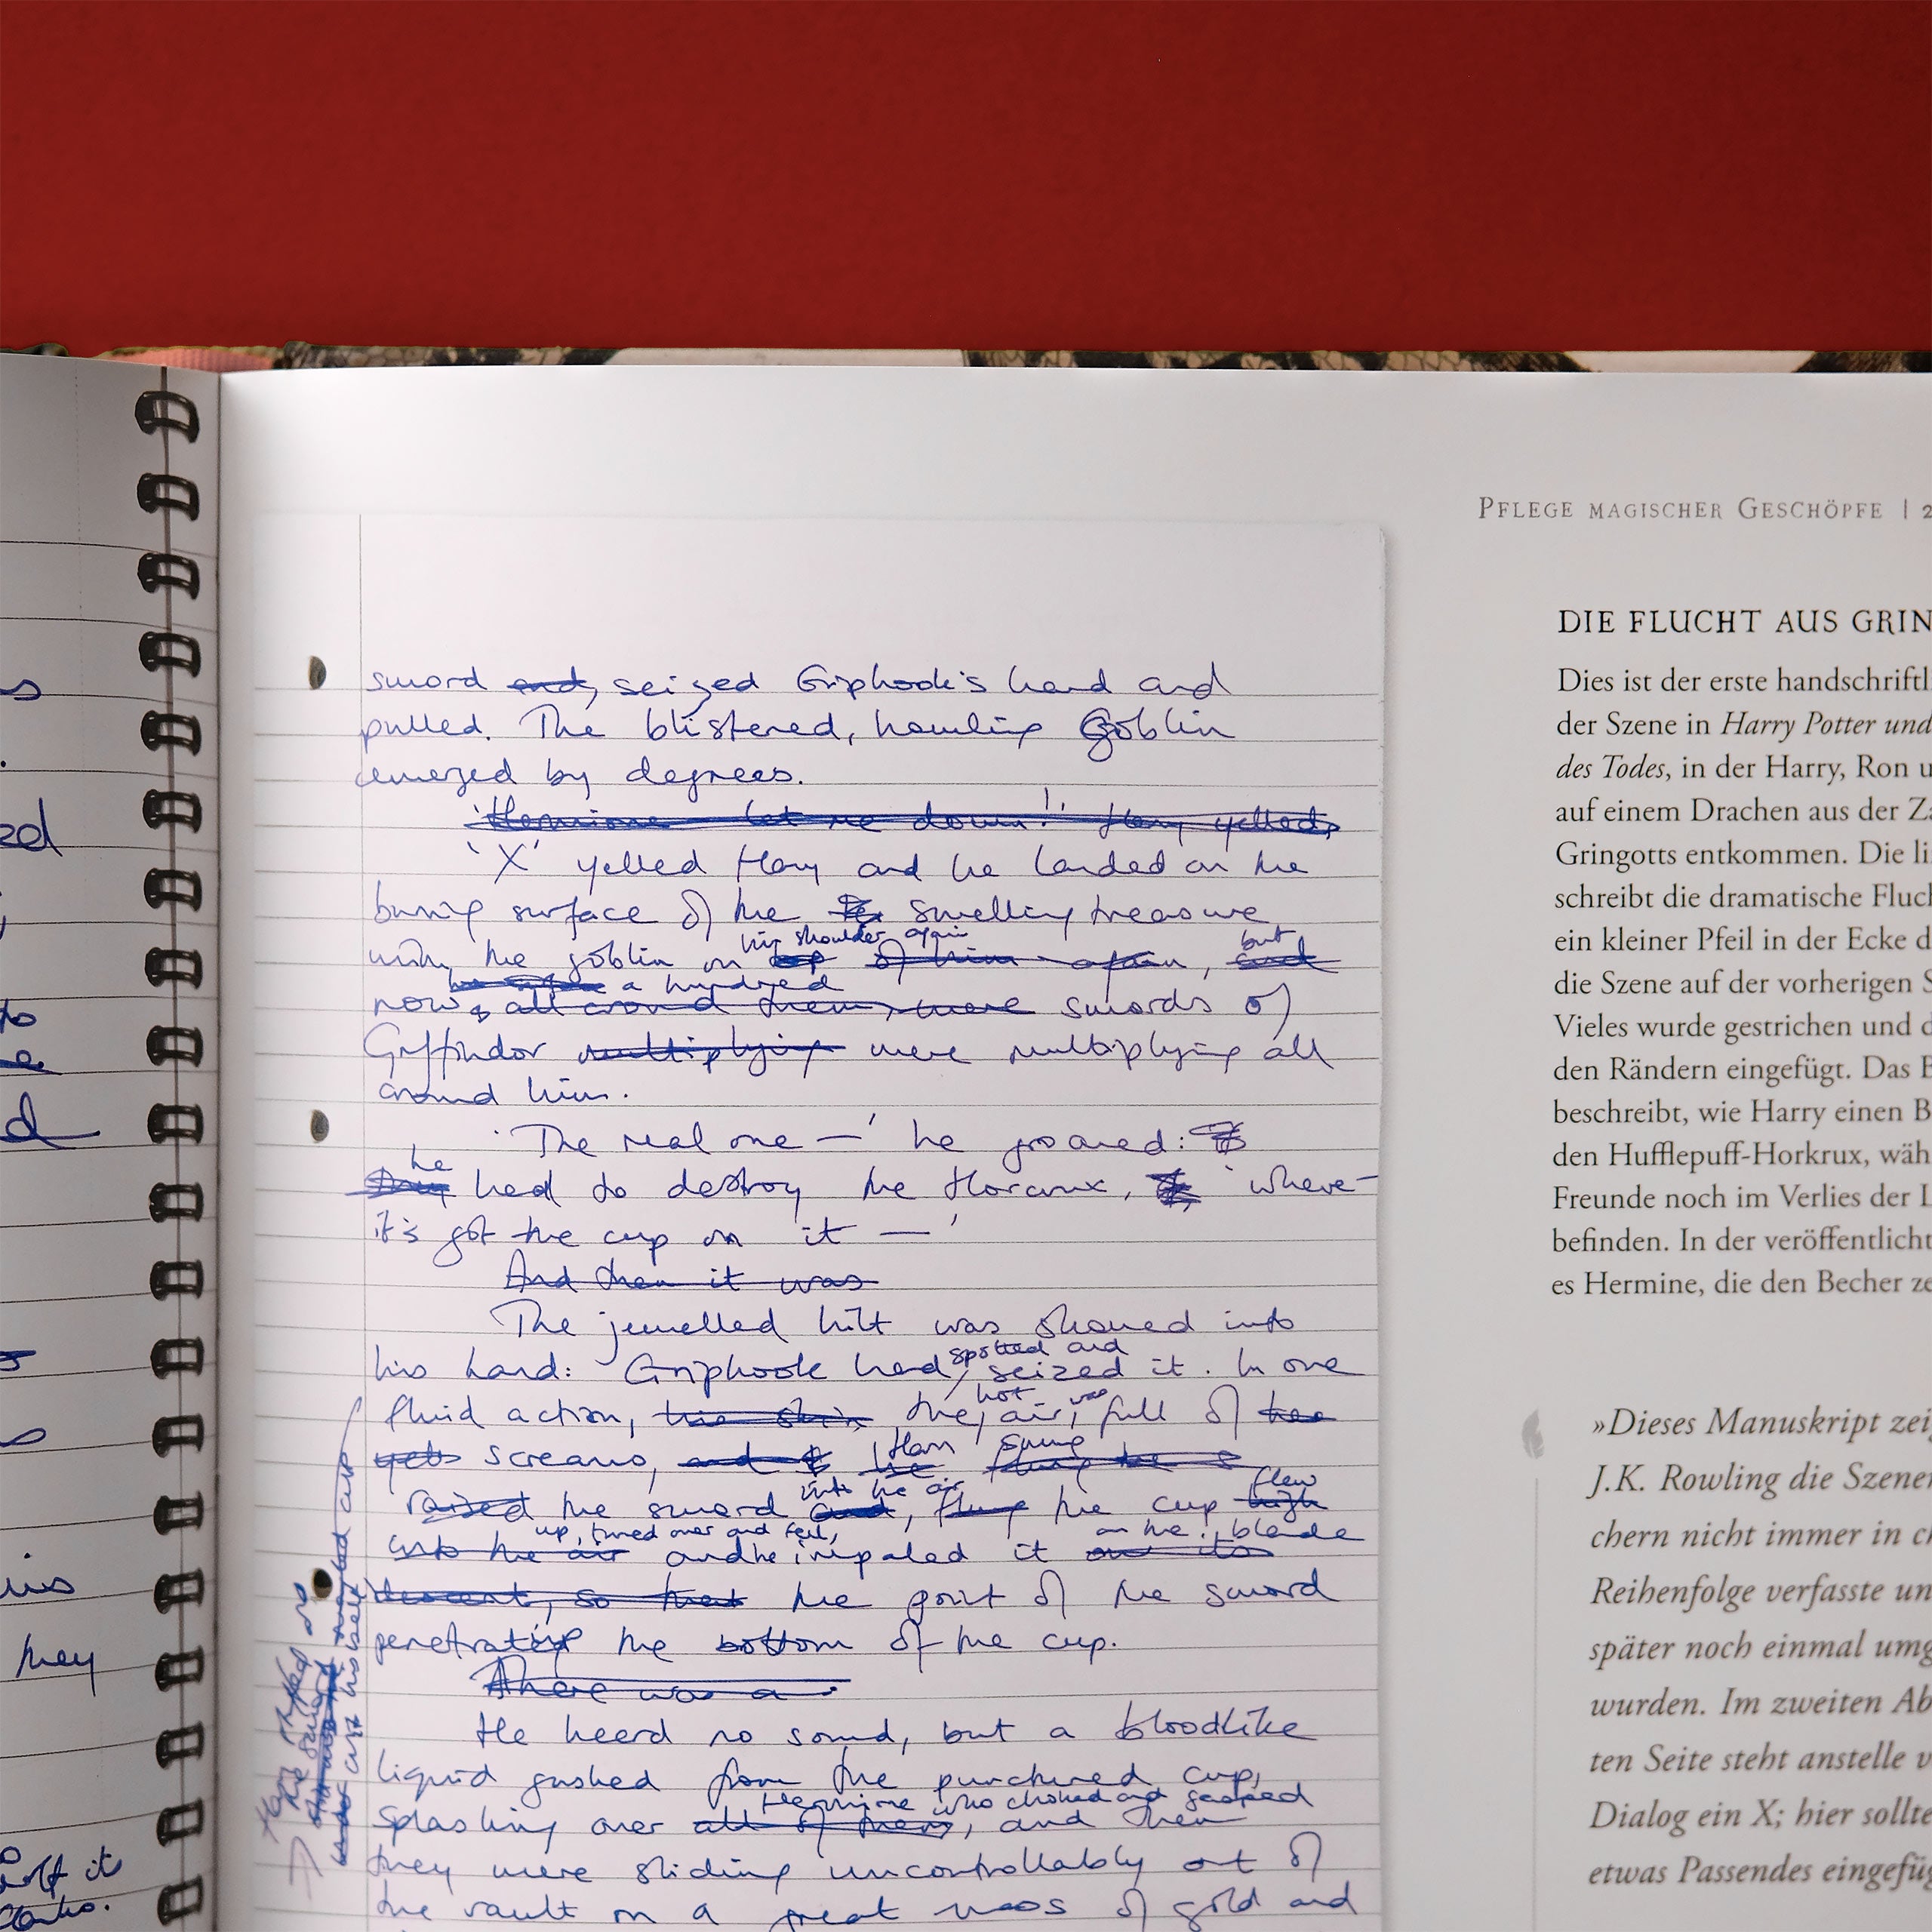 zed
they
left it
PFLEGE MAGISCHER GESCHÖPFE | 2
sword and, seized Griphook's hand and
pulled. The blistered, howling Goblin
emerged by degrees.
'Hermione let me down!' Harry yelled,
'X' yelled Harry and he landed on the
burning surface of the swelling treasure
his shoulder again but
with the goblin on top of him again, and
a hundred
now, all around them, were swords of
Gryffindor multiplying were multiplying all
around him.
'The real one —' he groaned:
he
they had to destroy the Horcrux, 'where –
it's got the cup on it —'
And then it was
The jewelled hilt was shoved into
spotted and
his hand: Griphook had seized it. In one
hot was
fluid action, the air, full of
Harry swung
yells screams, and he flung the
into the air flew
raised the sword and, flung the cup high
up, turned over and fell, on the blade
into the air and he impaled it on its
descent, so that the point of the sword
penetrating the bottom of the cup.
There was a
He heard no sound, but a bloodlike
liquid gushed from the punctured cup,
Hermione who choked and gasped
splashing over all of them, and then
they were sliding uncontrollably out of
the vault on a great mass of gold and
DIE FLUCHT AUS GRIN
Dies ist der erste handschriftl
der Szene in Harry Potter und
des Todes, in der Harry, Ron u
auf einem Drachen aus der Za
Gringotts entkommen. Die li
schreibt die dramatische Fluch
ein kleiner Pfeil in der Ecke d
die Szene auf der vorherigen S
Vieles wurde gestrichen und d
den Rändern eingefügt. Das B
beschreibt, wie Harry einen B
den Hufflepuff-Horkrux, wäh
Freunde noch im Verlies der L
befinden. In der veröffentlicht
es Hermine, die den Becher ze
»Dieses Manuskript zeig
J.K. Rowling die Szenen
chern nicht immer in ch
Reihenfolge verfasste un
später noch einmal umg
wurden. Im zweiten Ab
ten Seite steht anstelle v
Dialog ein X; hier sollte
etwas Passendes eingefüg